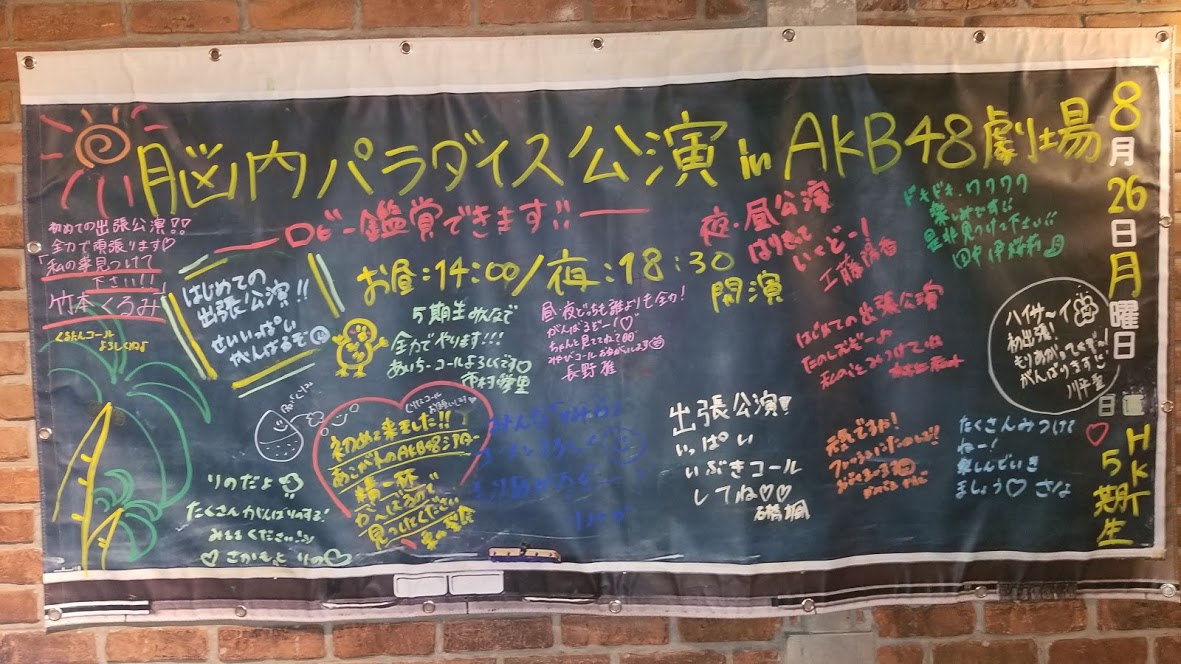 脳内パラダイス公演 in AKB48劇場
ロビー鑑賞できます!!
お昼:14:00/夜:18:30
開演
8月26日月曜日
日直
HKT
5期生
初めての出張公演!!
全力で頑張ります♡
「私の事見つけて
下さい!!!
竹本くるみ
くるたんコール
よろしくね♪
はじめての
出張公演!!
せいいっぱい
がんばるぞ
5期生みんなで
全力でやります!!!
あいちーコールよろしくです♡
市村愛里
昼・夜どっちも誰よりも全力!
がんばるぞー!♡
ちゃんと見ててね?
みやびコールおねがいします
長野雅
夜・昼公演
はりきって
いくどー!
工藤陽香
ドキドキ、ワクワク
楽しみです!!
是非見つけて下さい!!
田中伊桜莉
はじめての出張公演
たのしむぞー♪
私のことみつけてね
ハイサーイ
初出張!
もりあがってくぞー!
がんばります
川平聖
初めて来ました!!
あこがれのAKB48シアター
精一杯
がんばるので
見つけてください
りのだよ
たくさんがんばりのする!
みててください!!
♡さかもと りの♡
みんな
出張公演!
いっぱい
いぶきコール
してね♡♡
石橋颯
元気ですか!
たくさんみつけて
ねー!
楽しんでいき
ましょう♡ さな